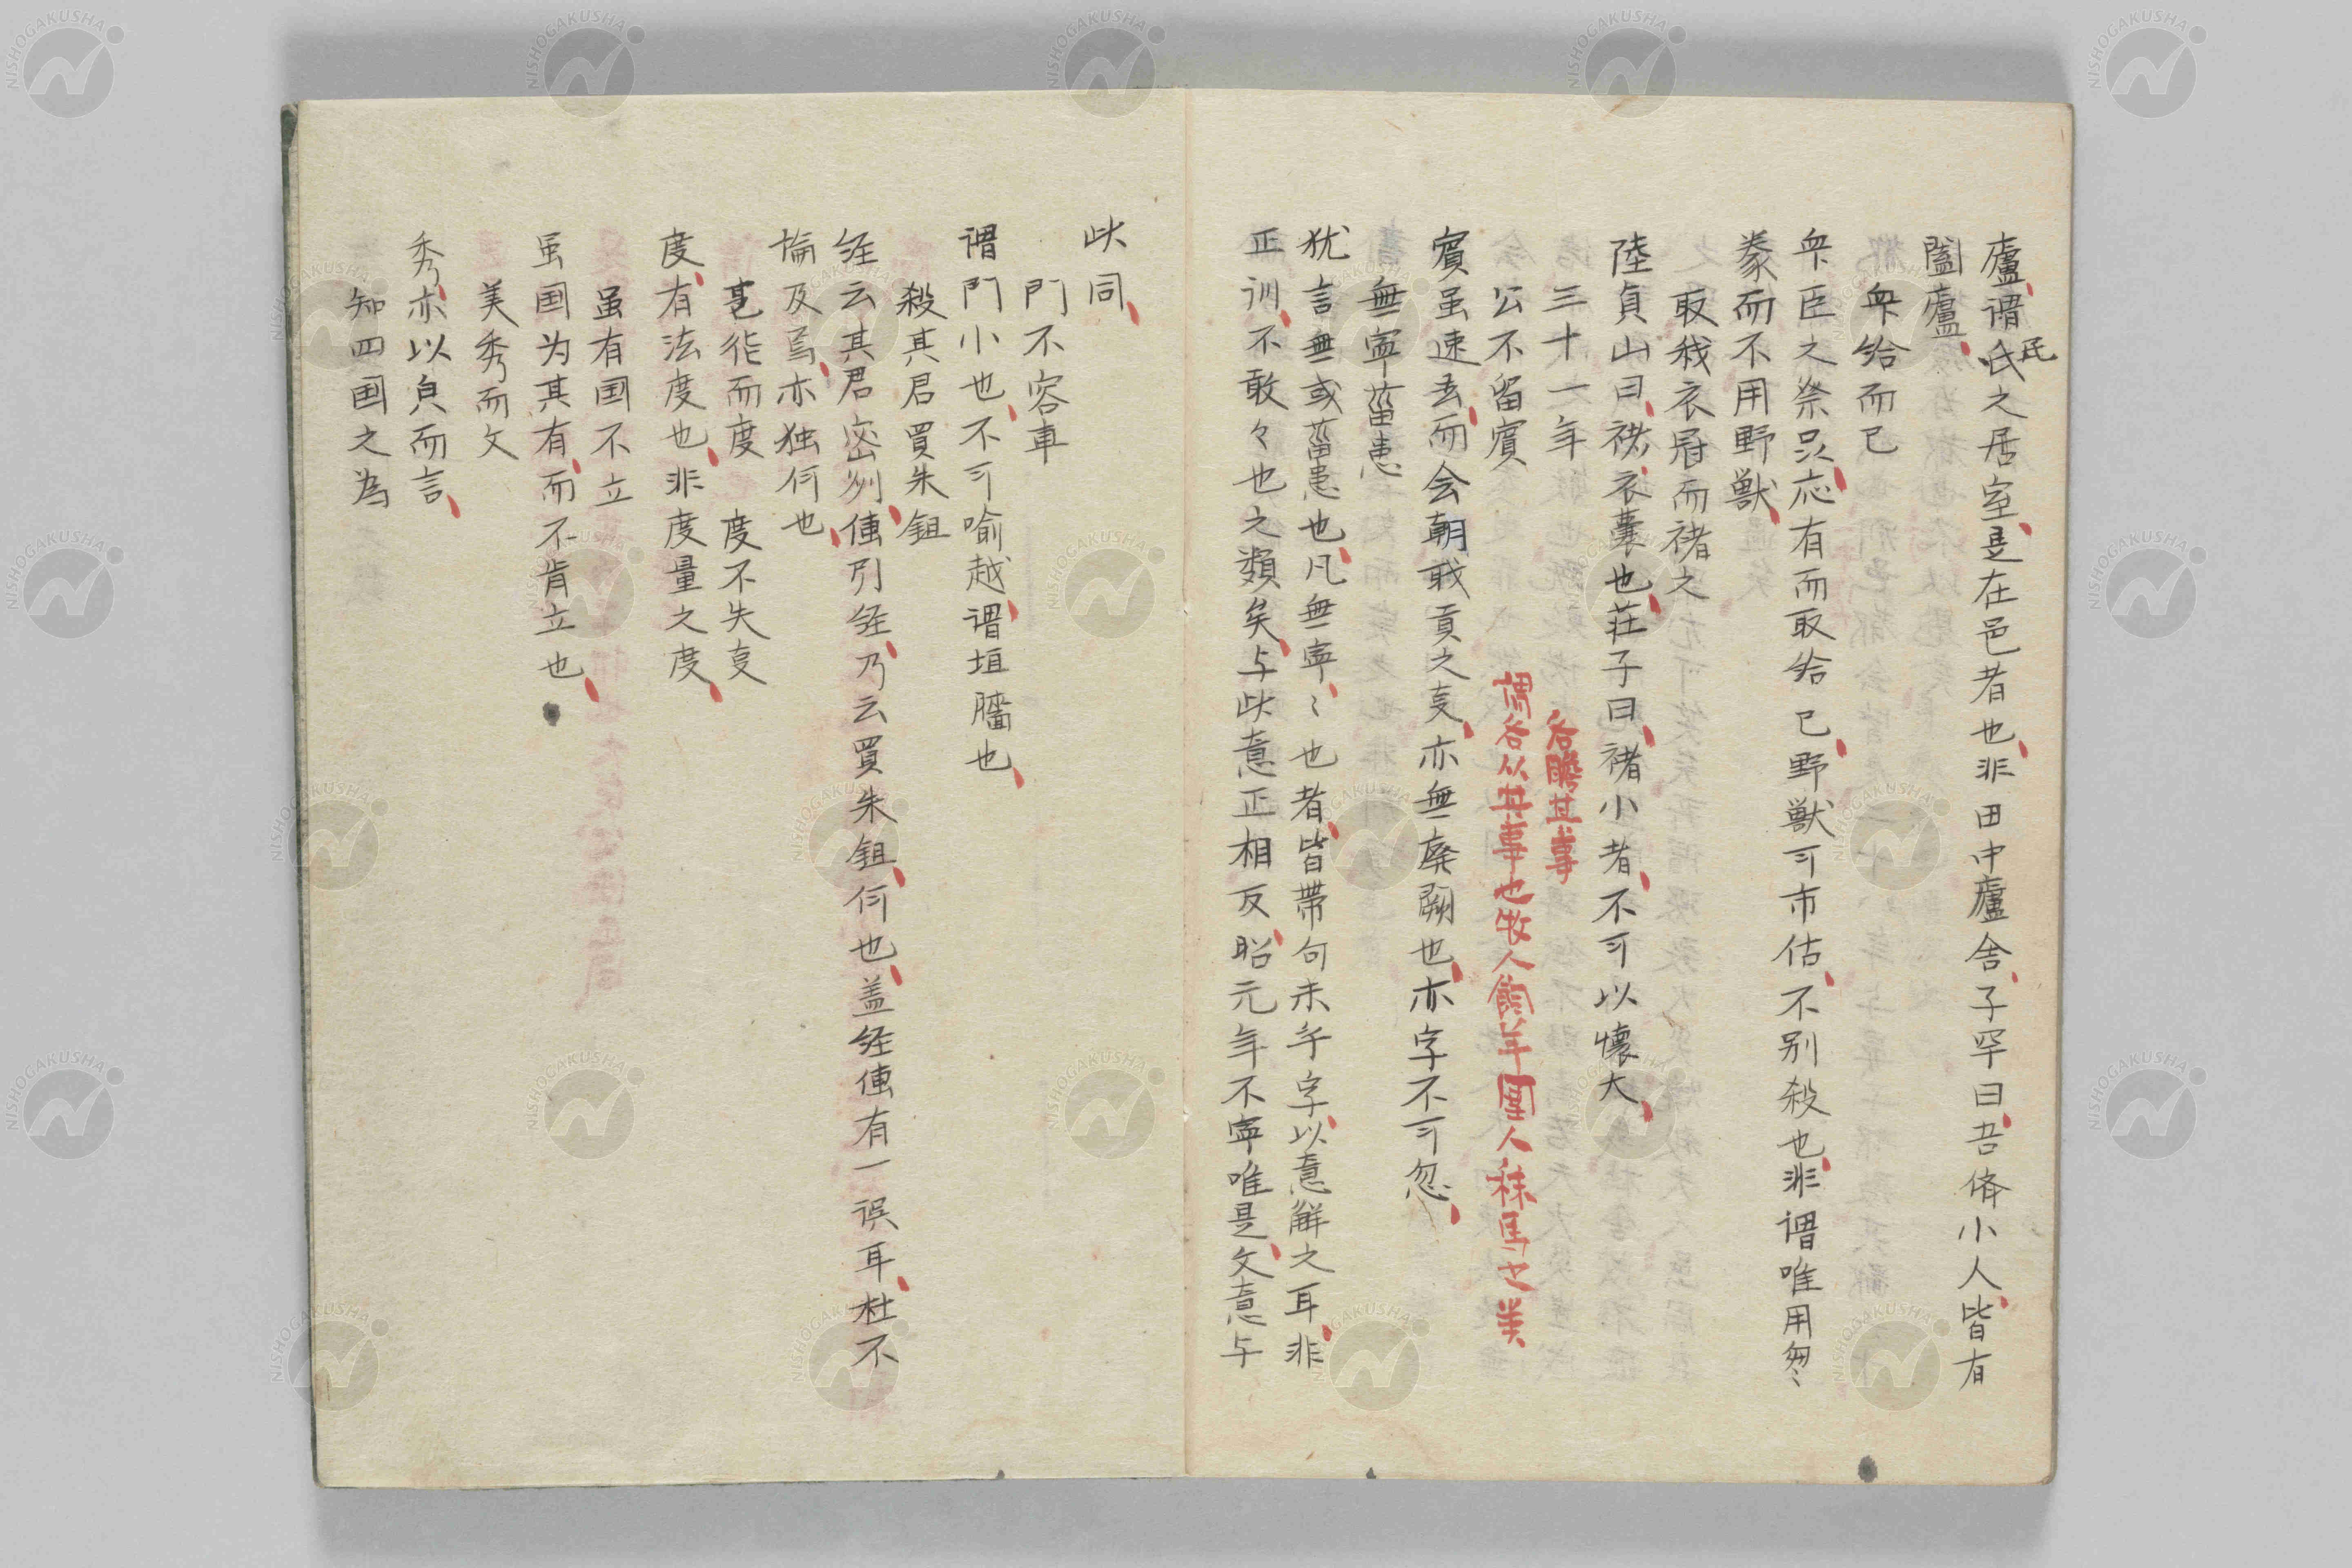 廬謂氏之居室是在邑者也非田中廬舎子罕曰吾儕小人皆有
民
闔廬
衆給而已
衆臣之祭只応有而取給已野獣可市估不別殺也非謂唯用芻〻
豢而不用野獣
取我衣冠而褚之
陸貞山曰褚衣囊也荘子曰褚小者不可以懐大
三十一年
各瞻其事
公不留賓
謂各以其事也牧人飼羊圉人秣馬之美
賓虽速去而会朝聀貢之㕝亦無廃闕也亦字不可忽
無寧菑患
犹言無或菑患也凡無寧〻也者皆帯句末乎字以意解之耳非
正訓不敢々也之類矣与此意正相反昭元年不寧唯是文意与
此同
門不容車
謂門小也不可喻越謂垣牆也
殺其君買朱鉏
経云其君密州傳引経乃云買朱鉏何也盖経傳有一误耳杜不
論及焉亦独何也
㐪能而度　度不失㕝
度有法度也非度量之度
虽有国不立
虽国为其有而不肯立也
美秀而文
秀亦以皃而言
知四国之為